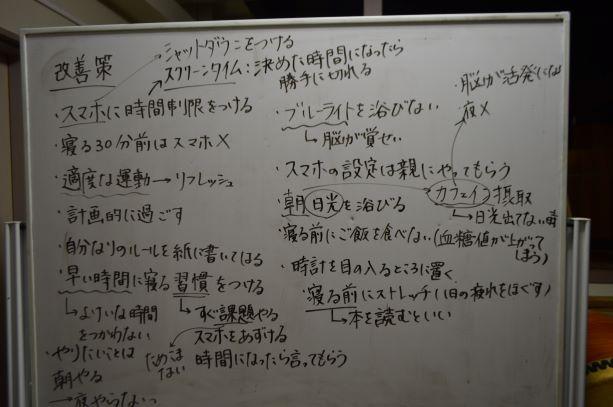 改善策
シャットダウンをつける
スクリーンタイム:決めた時間になったら
勝手に切れる
・スマホに時間制限をつける
・寝る30分前はスマホ×
・適度な運動→リフレッシュ
・計画的に過ごす
・自分なりのルールを紙に書いてはる
・早い時間に寝る習慣をつける
→よけいな時間
をつかわない
→すぐ課題やる
ためこま
ない
スマホをあずける
時間になったら言ってもらう
・やりたいことは
朝やる
→夜やらない
・ブルーライトを浴びない
→脳が覚せい
・スマホの設定は親にやってもらう
・朝日光を浴びる
・カフェイン摂取
→日光出てない時
・脳が活発になる
夜×
・寝る前にご飯を食べない(血糖値が上がって
しまう)
・時計を目の入るところに置く
・寝る前にストレッチ(1日の疲れをほぐす)
→本を読むといい